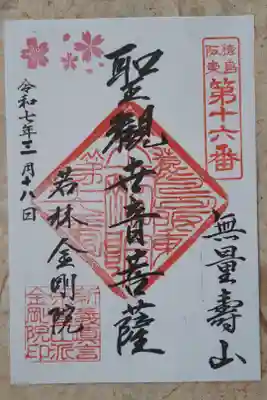 猿島
阪東
第十六番
無量壽山
聖觀世音菩薩
若林金剛院
令和七年三月十八日
金剛院印